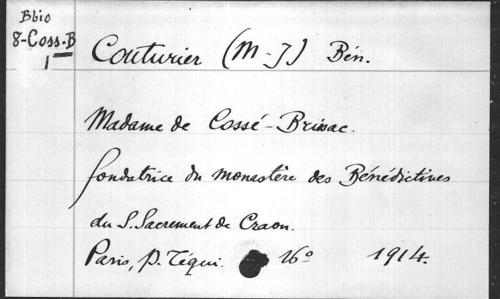 Bbio
8-Coss-B
1
Couturier (M-J) Bén.
Madame de Cossé-Brissac.
fondatrice du monastère des Bénédictines
du S. Sacrement de Craon.
Paris, P. Téqui. 16° 1914.